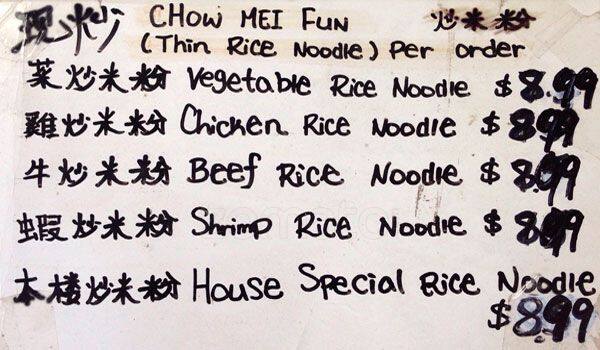 现炒 CHOW MEI FUN 炒米粉
(Thin Rice Noodle) Per order
菜炒米粉 Vegetable Rice Noodle $8.99
雞炒米粉 Chicken Rice Noodle $8.99
牛炒米粉 Beef Rice Noodle $8.99
蝦炒米粉 Shrimp Rice Noodle $8.99
本楼炒米粉 House Special Rice Noodle
$8.99